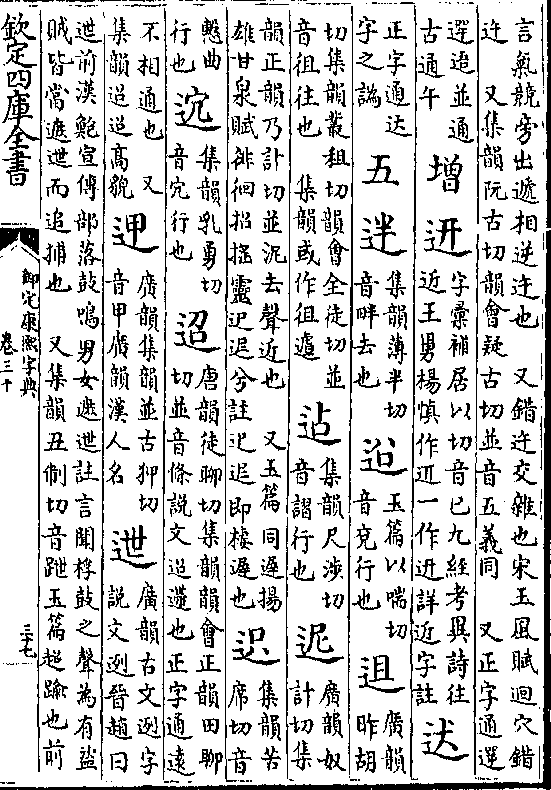 言氣競旁出遞相逆迕也　又錯迕交雜也宋玉風賦迴穴錯
迕　又集韻阮古切韻會疑古切並音五義同　又正字通遻
遻迨並通
古通午
增
字彙補居以切音已九經考異詩往
近王舅楊慎作一作詳近字註
迏
正字通达
字之譌
五
集韻薄半切
音畔去也
玉篇以喘切
音兗行也
廣韻
昨胡
切集韻叢租切韻會全徒切並
音徂往也　集韻或作徂
迠
集韻尺涉切
音謵行也
迡
廣韻奴
計切集
韻正韻乃計切並泥去聲近也　又玉篇同遲揚
雄甘泉賦徘徊招搖靈迟迡兮註迟迡即棲遲也
迟
集韻苦
席切音
曲
行也
集韻乳勇切
音宂行也
迢
唐韻徒聊切集韻韻會正韻田聊
切並音條說文迢遰也正字通遠
不相通也　又
集韻迢迢高貌
廣韻集韻並古狎切
音甲廣韻漢人名
迣
廣韻古文迾字
說文迾晉趙曰
迣前漢鮑宣傳部落鼓鳴男女遮迣註言聞桴鼓之聲為有盜
賊皆當遮迣而追捕也　又集韻丑例切音跇玉篇超踰也前
欽定四庫全書
御定康熙字典
卷三十
三七